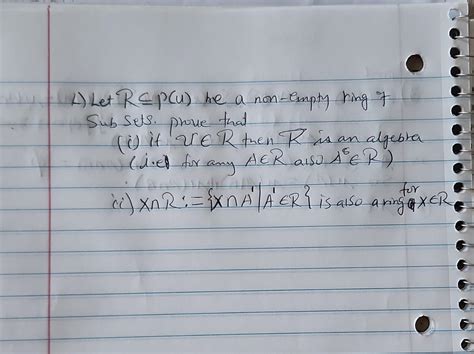 1) Let R ⊆ P(U) be a non-empty ring of
Subsets. prove that
(i) if U ∈ R then R is an algebra
(i.e. for any A∈R also Aᶜ ∈ R)
ii) X∩R := {X∩A' | A' ∈ R} is also a ring for X∈R